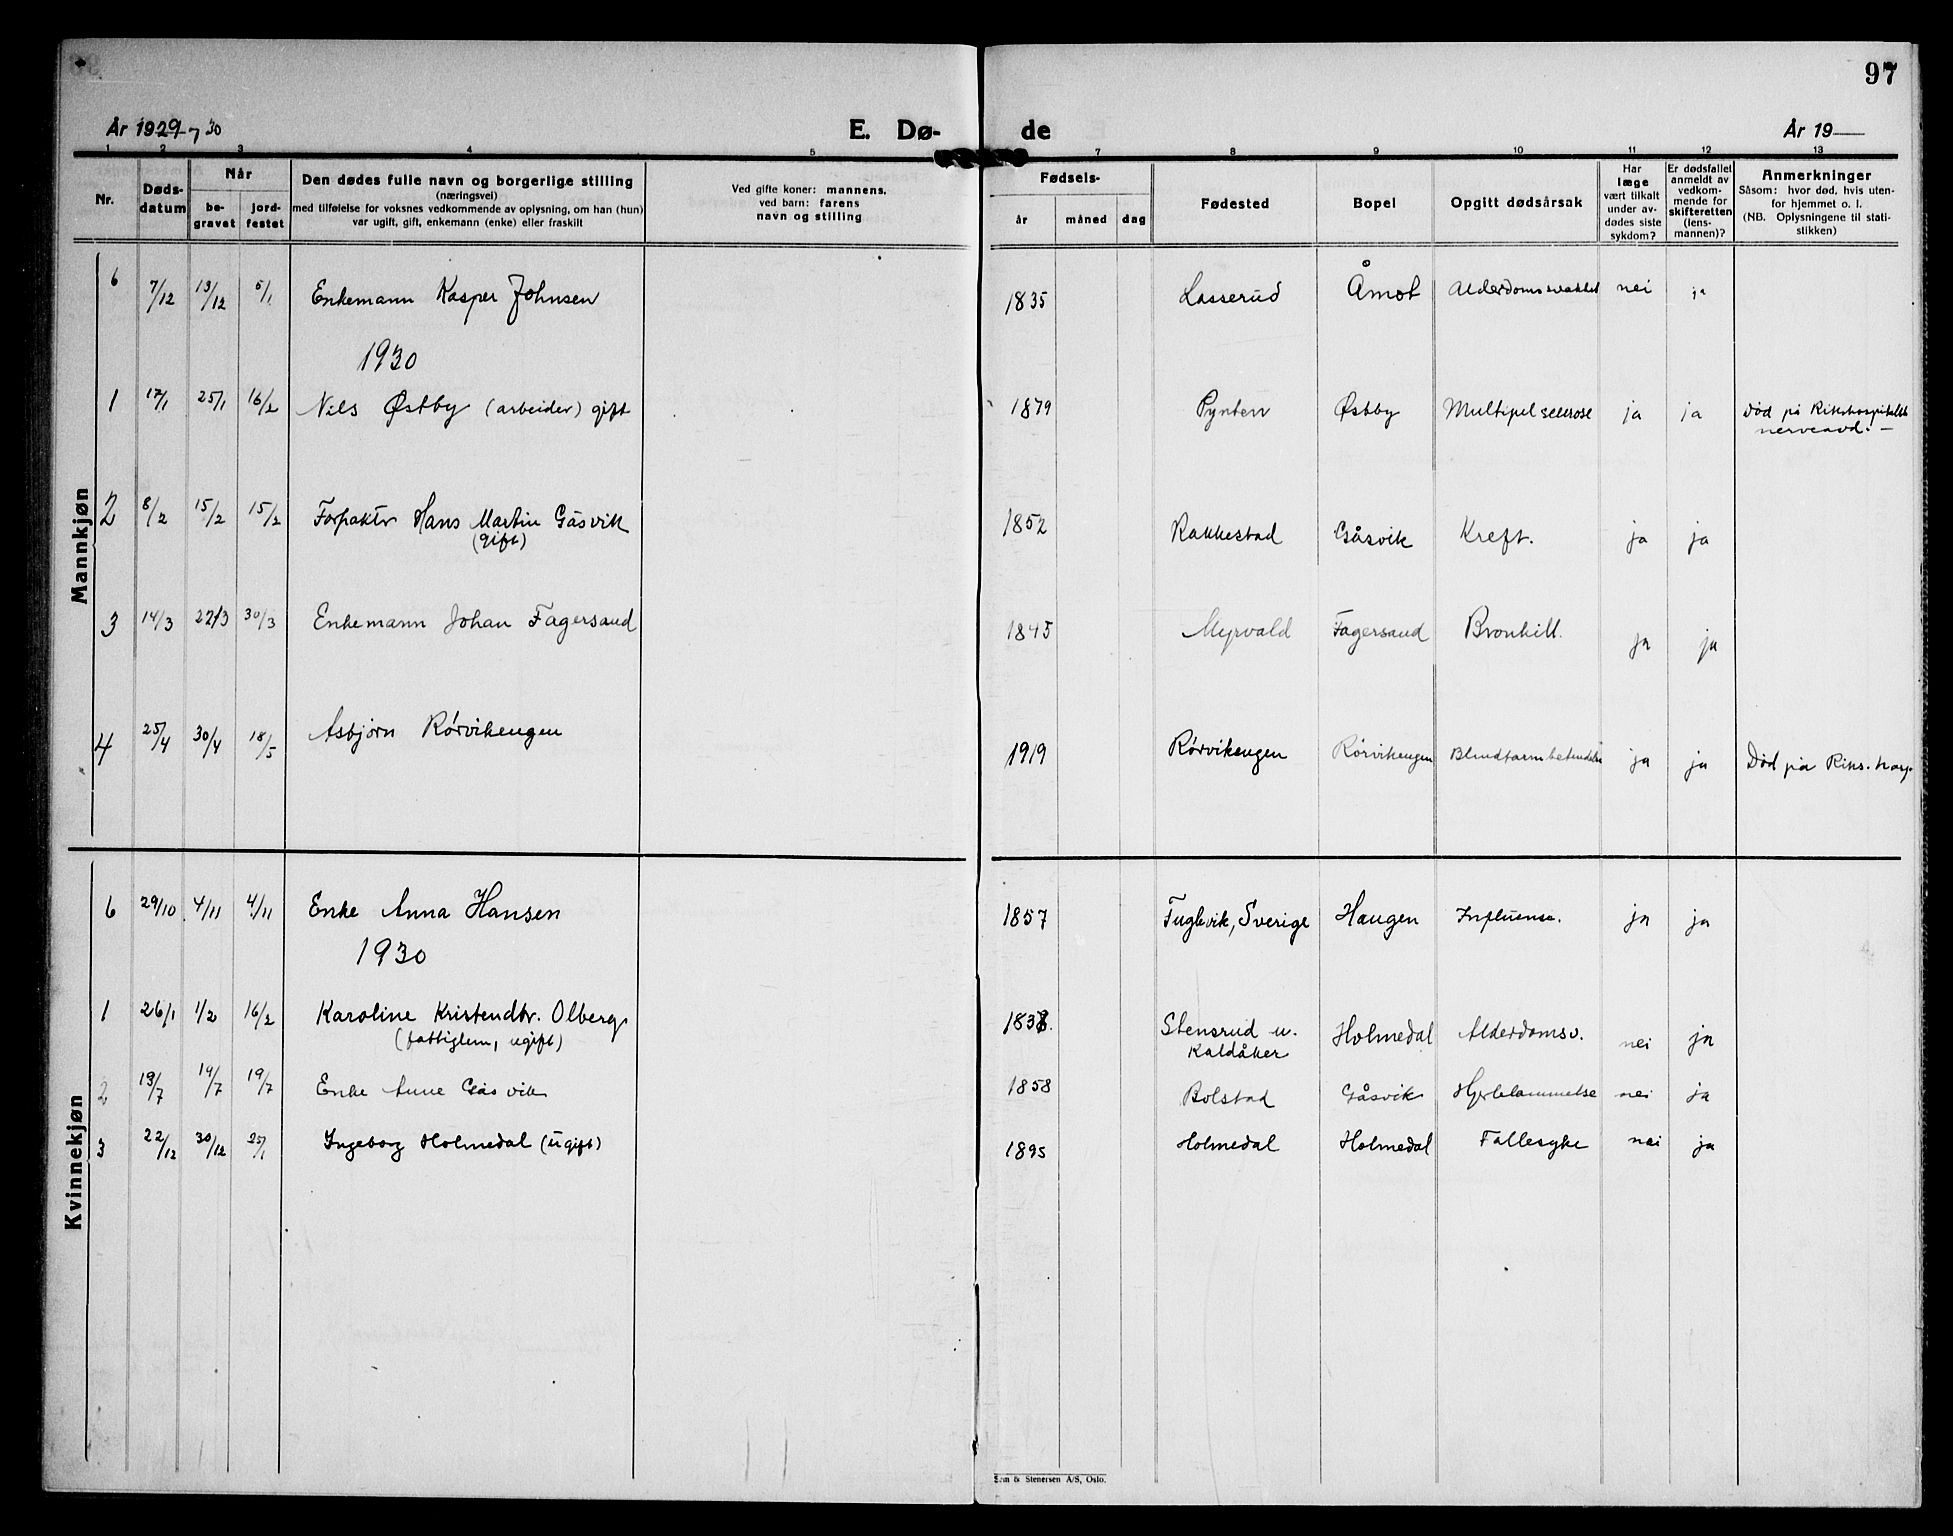 97
År 1929-30
E. Dø-
de
År 19
1 2 3 4 5
7 8 9 10 11 12 13
Nr.
Døds-
datum
Når
be-
gravet
jord-
festet
Den dødes fulle navn og borgerlige stilling
(næringsvei)
med tilføielse for voksnes vedkommende av oplysning, om han (hun)
var ugift, gift, enkemann (enke) eller fraskilt
Ved gifte koner: mannens,
ved barn: farens
navn og stilling
Fødsels-
år måned dag
Fødested
Bopel
Opgitt dødsårsak
Har
læge
vært tilkalt
under av-
dødes siste
sykdom?
Er dødsfallet
anmeldt av
vedkom-
mende for
skifteretten
(lens-
mannen)?
Anmerkninger
Såsom: hvor død, hvis uten-
for hjemmet o. l.
(NB. Oplysningene til stati-
stikken)
Mannkjøn
6 7/12 13/12 5/1 Enkemann Kasper Johnsen 1835 Lasserud Åmot nei ja
1930
1 17/1 25/1 16/2 Nils Østby (arbeider) gift 1879 Pynten Østby Multipel sclerose ja ja Død på Rikshospitalets
nerveavd. –
2 8/2 15/2 15/2 Forpakter Hans Martin Gåsvik 1852 Rakkestad Gåsvik Kreft. ja ja
(gift)
3 14/3 22/3 30/3 Enkemann Johan Fagersand 1845 Myrvald Fagersand Bronkitt. ja ja
4 25/4 30/4 18/5 Asbjørn Rørvikengen 1919 Rørvikengen Rørvikengen Blindtarmbetendelse ja ja Død på Riks.hosp.
Kvinnekjøn
6 29/10 4/11 4/11 Enke Anna Hansen 1857 Fuglevik, Sverige Haugen Influensa. ja ja
1930
1 26/1 1/2 16/2 Karoline Kristendtr. Olberg Stensrud u. Holmedal Alderdomsv. nei ja
(fattiglem, ugift) Kaldåker
2 13/7 19/7 19/7 Enke Anne Gåsvik 1858 Bolstad Gåsvik Hjertelammelse nei ja
3 22/12 30/12 25/1 Ingeborg Holmedal (ugift) 1895 Holmedal Holmedal Fallesyke nei ja
Sem & Stenersen A/S, Oslo.